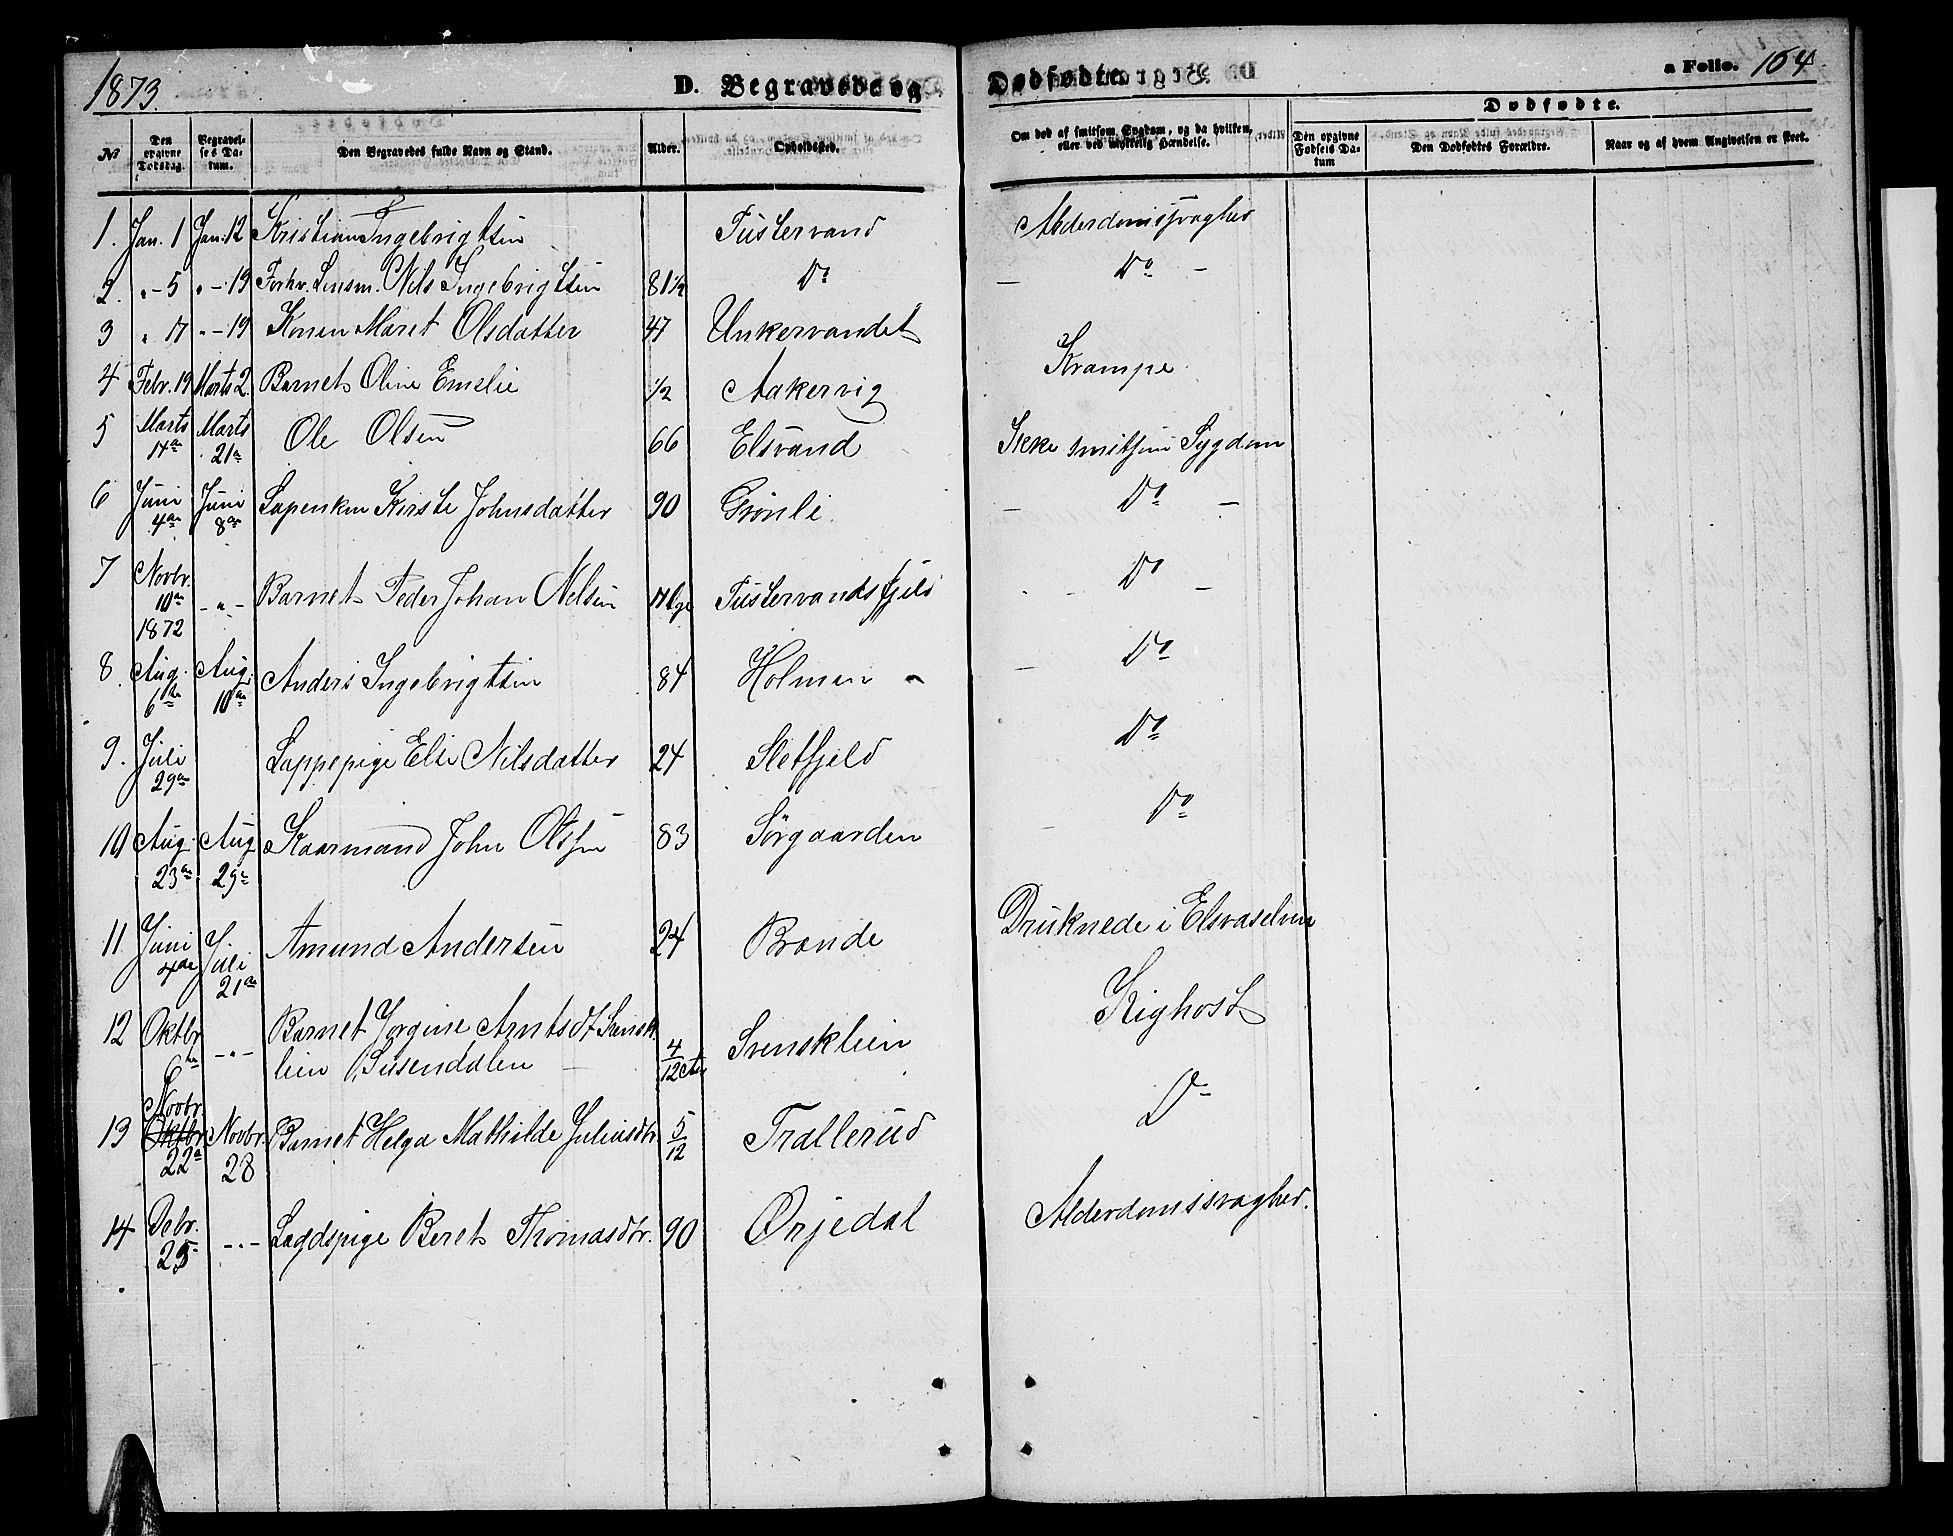 1873.
D. Begravede og
Dødfødte.
a Folio. 164
No
Den opgivne Dødsdag.
Begravelses Datum.
Den Begravedes fulde Navn og Stand.
Alder.
Opholdssted.
Om død af smitsom Sygdom, og da hvilken, eller ved ulykkelig Hændelse.
Dødfødte.
Den opgivne Fødsels Datum
Den Dødfødtes Forældre.
Naar og af hvem Angivelsen er skeet.
1. Jan. 1 Jan. 12 Kristian Ingebrigtsen Tustervand Alderdomssvaghed
2. " - 5 " - 19 Forhv. Lensm. Nils Ingebrigtsen 81 1/2 Do - Do -
3 " 17 " - 19 Konen Maret Olsdatter 47 Unkervandet
4 Febr. 19 Marts 2 Barnet Oline Emelie 1/2 Aakervig Krampe
5 Marts 14de Marts 21de Ole Olsen 66 Elsvand Ikke smitsom Sygdom
6 Juni 4de Juni 8de Lapenken Kirste Johnsdatter 90 Grønli - Do -
7 Novbr. 10de 1872 - " - Barnet Peder Johan Nelsen Tustervandsfjeld - Do -
8 Aug. 6te Aug. 10de Anders Ingebrigtsen 84 Holmen - Do
9. Juli 29de Lappepige Else Nilsdatter 24 Sletfjeld Do
10 Aug. 23de Aug 29de Kaarmand John Olsen 83 Sørgaarden Do
11. Juni 4de Juli 21de Amund Andersen 24 Brænde Druknede i Elsvaselven
12 Oktbr. 6te - " - Barnet Jorgine Arntsdt Svensk-
lien Susendalen 4/12 Svensklien Kighoste
13 Novbr. Oktbr. 22de Novbr. 28 Barnet Helga Mathilde Juliusdtr. 5/12 Trallerud Do
14 Debr. 25 - " - Lægdspige Beret Thomasdtr. 90 Ørjedal Alderdomssvaghed.